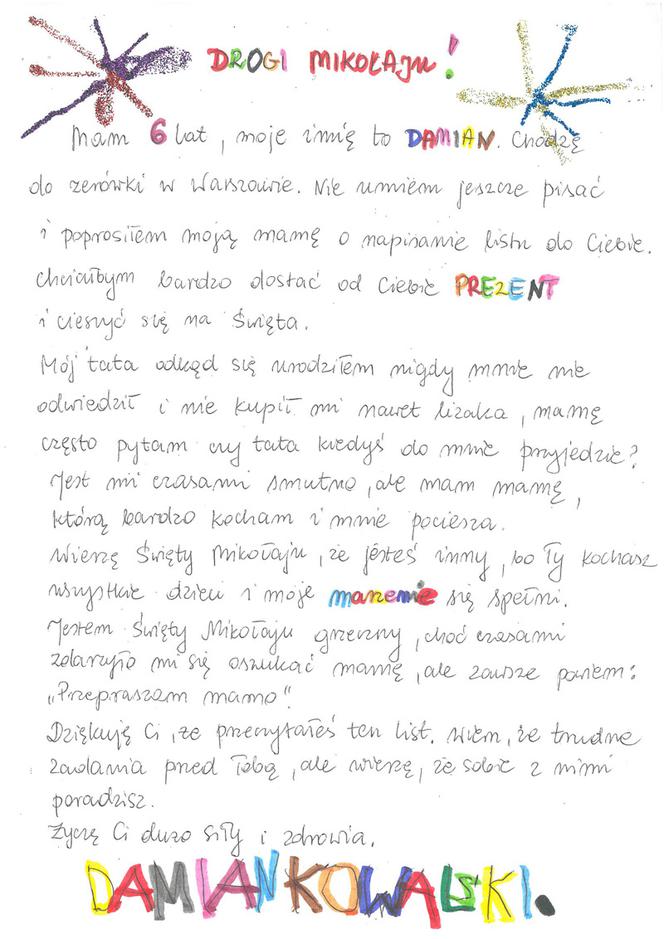 DROGI MIKOŁAJU!
Mam 6 lat, moje imię to DAMIAN. Chodzę
do zerówki w Warszawie. Nie umiem jeszcze pisać
i poprosiłem moją mamę o napisanie listu do Ciebie.
Chciałbym bardzo dostać od Ciebie PREZENT
i cieszyć się na Święta.
Mój tata odkąd się urodziłem nigdy mnie nie
odwiedził i nie kupił mi nawet lizaka, mamę
często pytam czy tata kiedyś do mnie przyjedzie?
Jest mi czasami smutno, ale mam mamę,
którą bardzo kocham i mnie pociesza.
Wierzę Święty Mikołaju, że jesteś inny, bo Ty kochasz
wszystkie dzieci i moje marzenie się spełni.
Jestem Święty Mikołaju grzeczny, choć czasami
zdarzyło mi się oszukać mamę, ale zawsze powiem:
"Przepraszam mamo"
Dziękuję Ci, że przeczytałeś ten list. Wiem, że trudne
zadania przed Tobą, ale wierzę, że sobie z nimi
poradzisz.
Życzę Ci dużo siły i zdrowia.
DAMIAN KOWALSKI.